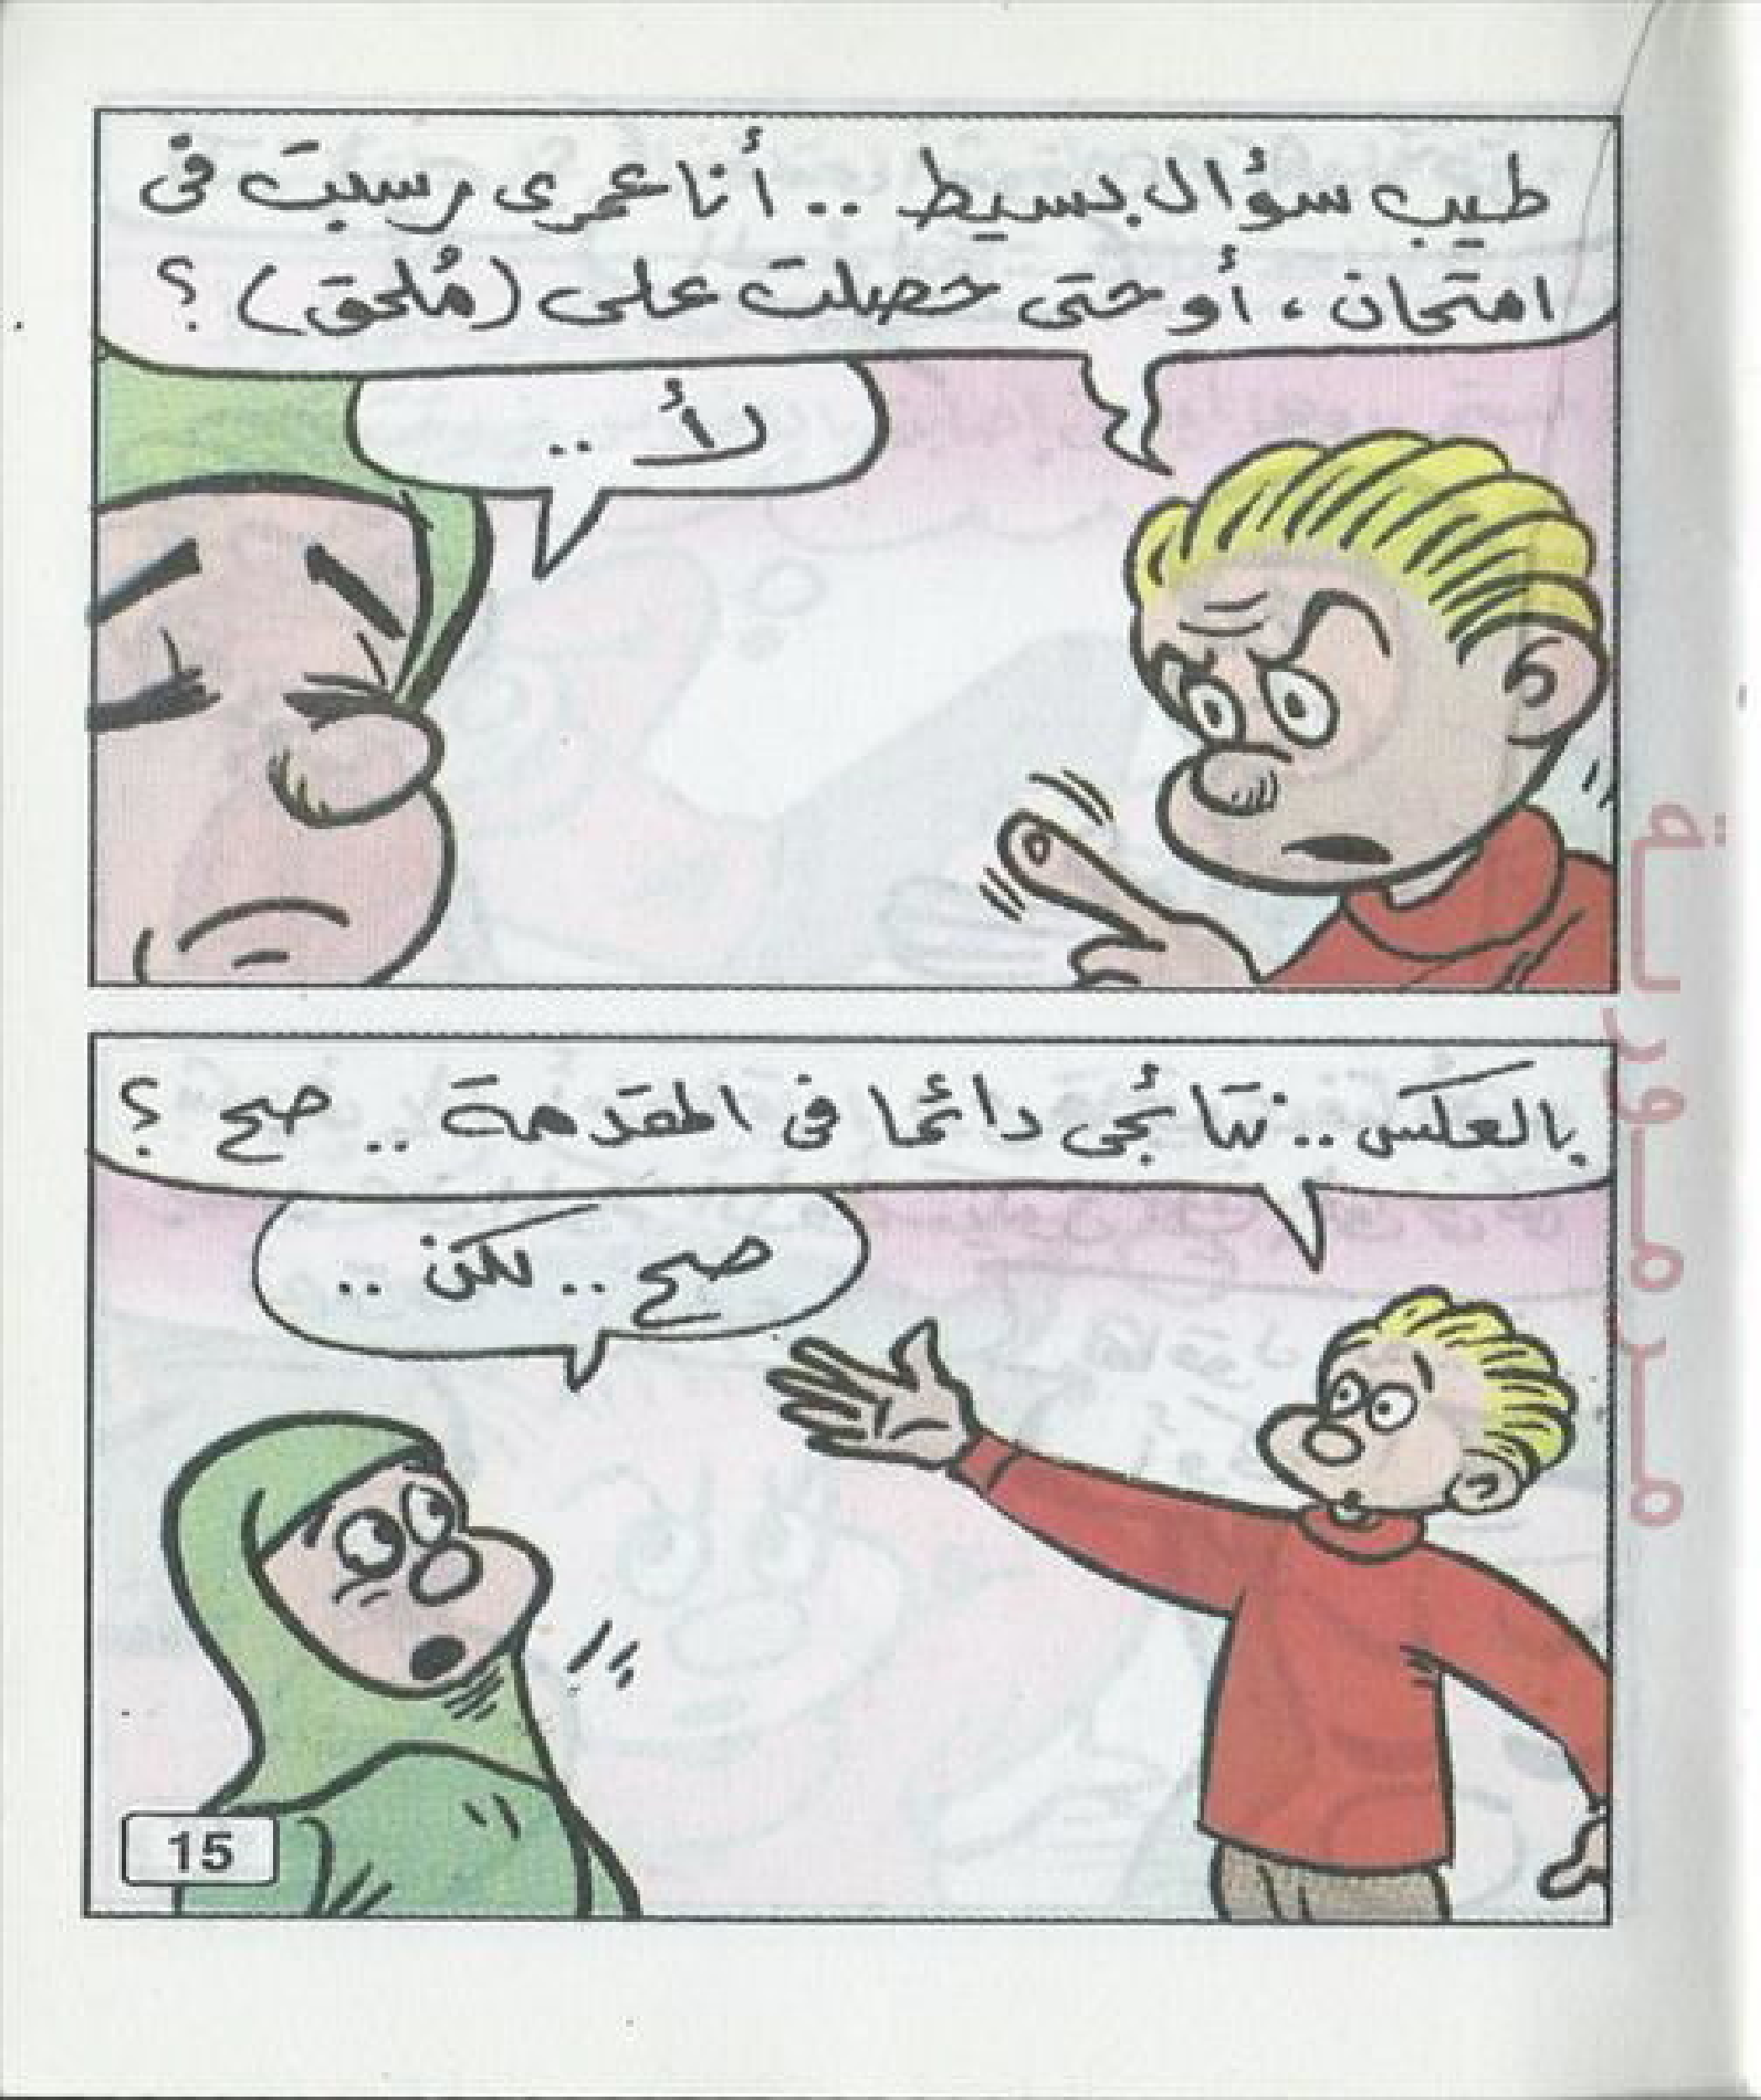 طيب سؤال بسيط .. أنا عمرى رسبت فى
امتحان ، أو حتى حصلت على (مُلحق) ؟
لأ ..
بالعكس .. نتائجى دائما فى المقدمة .. صح ؟
صح .. لكن ..
15
مرمورية